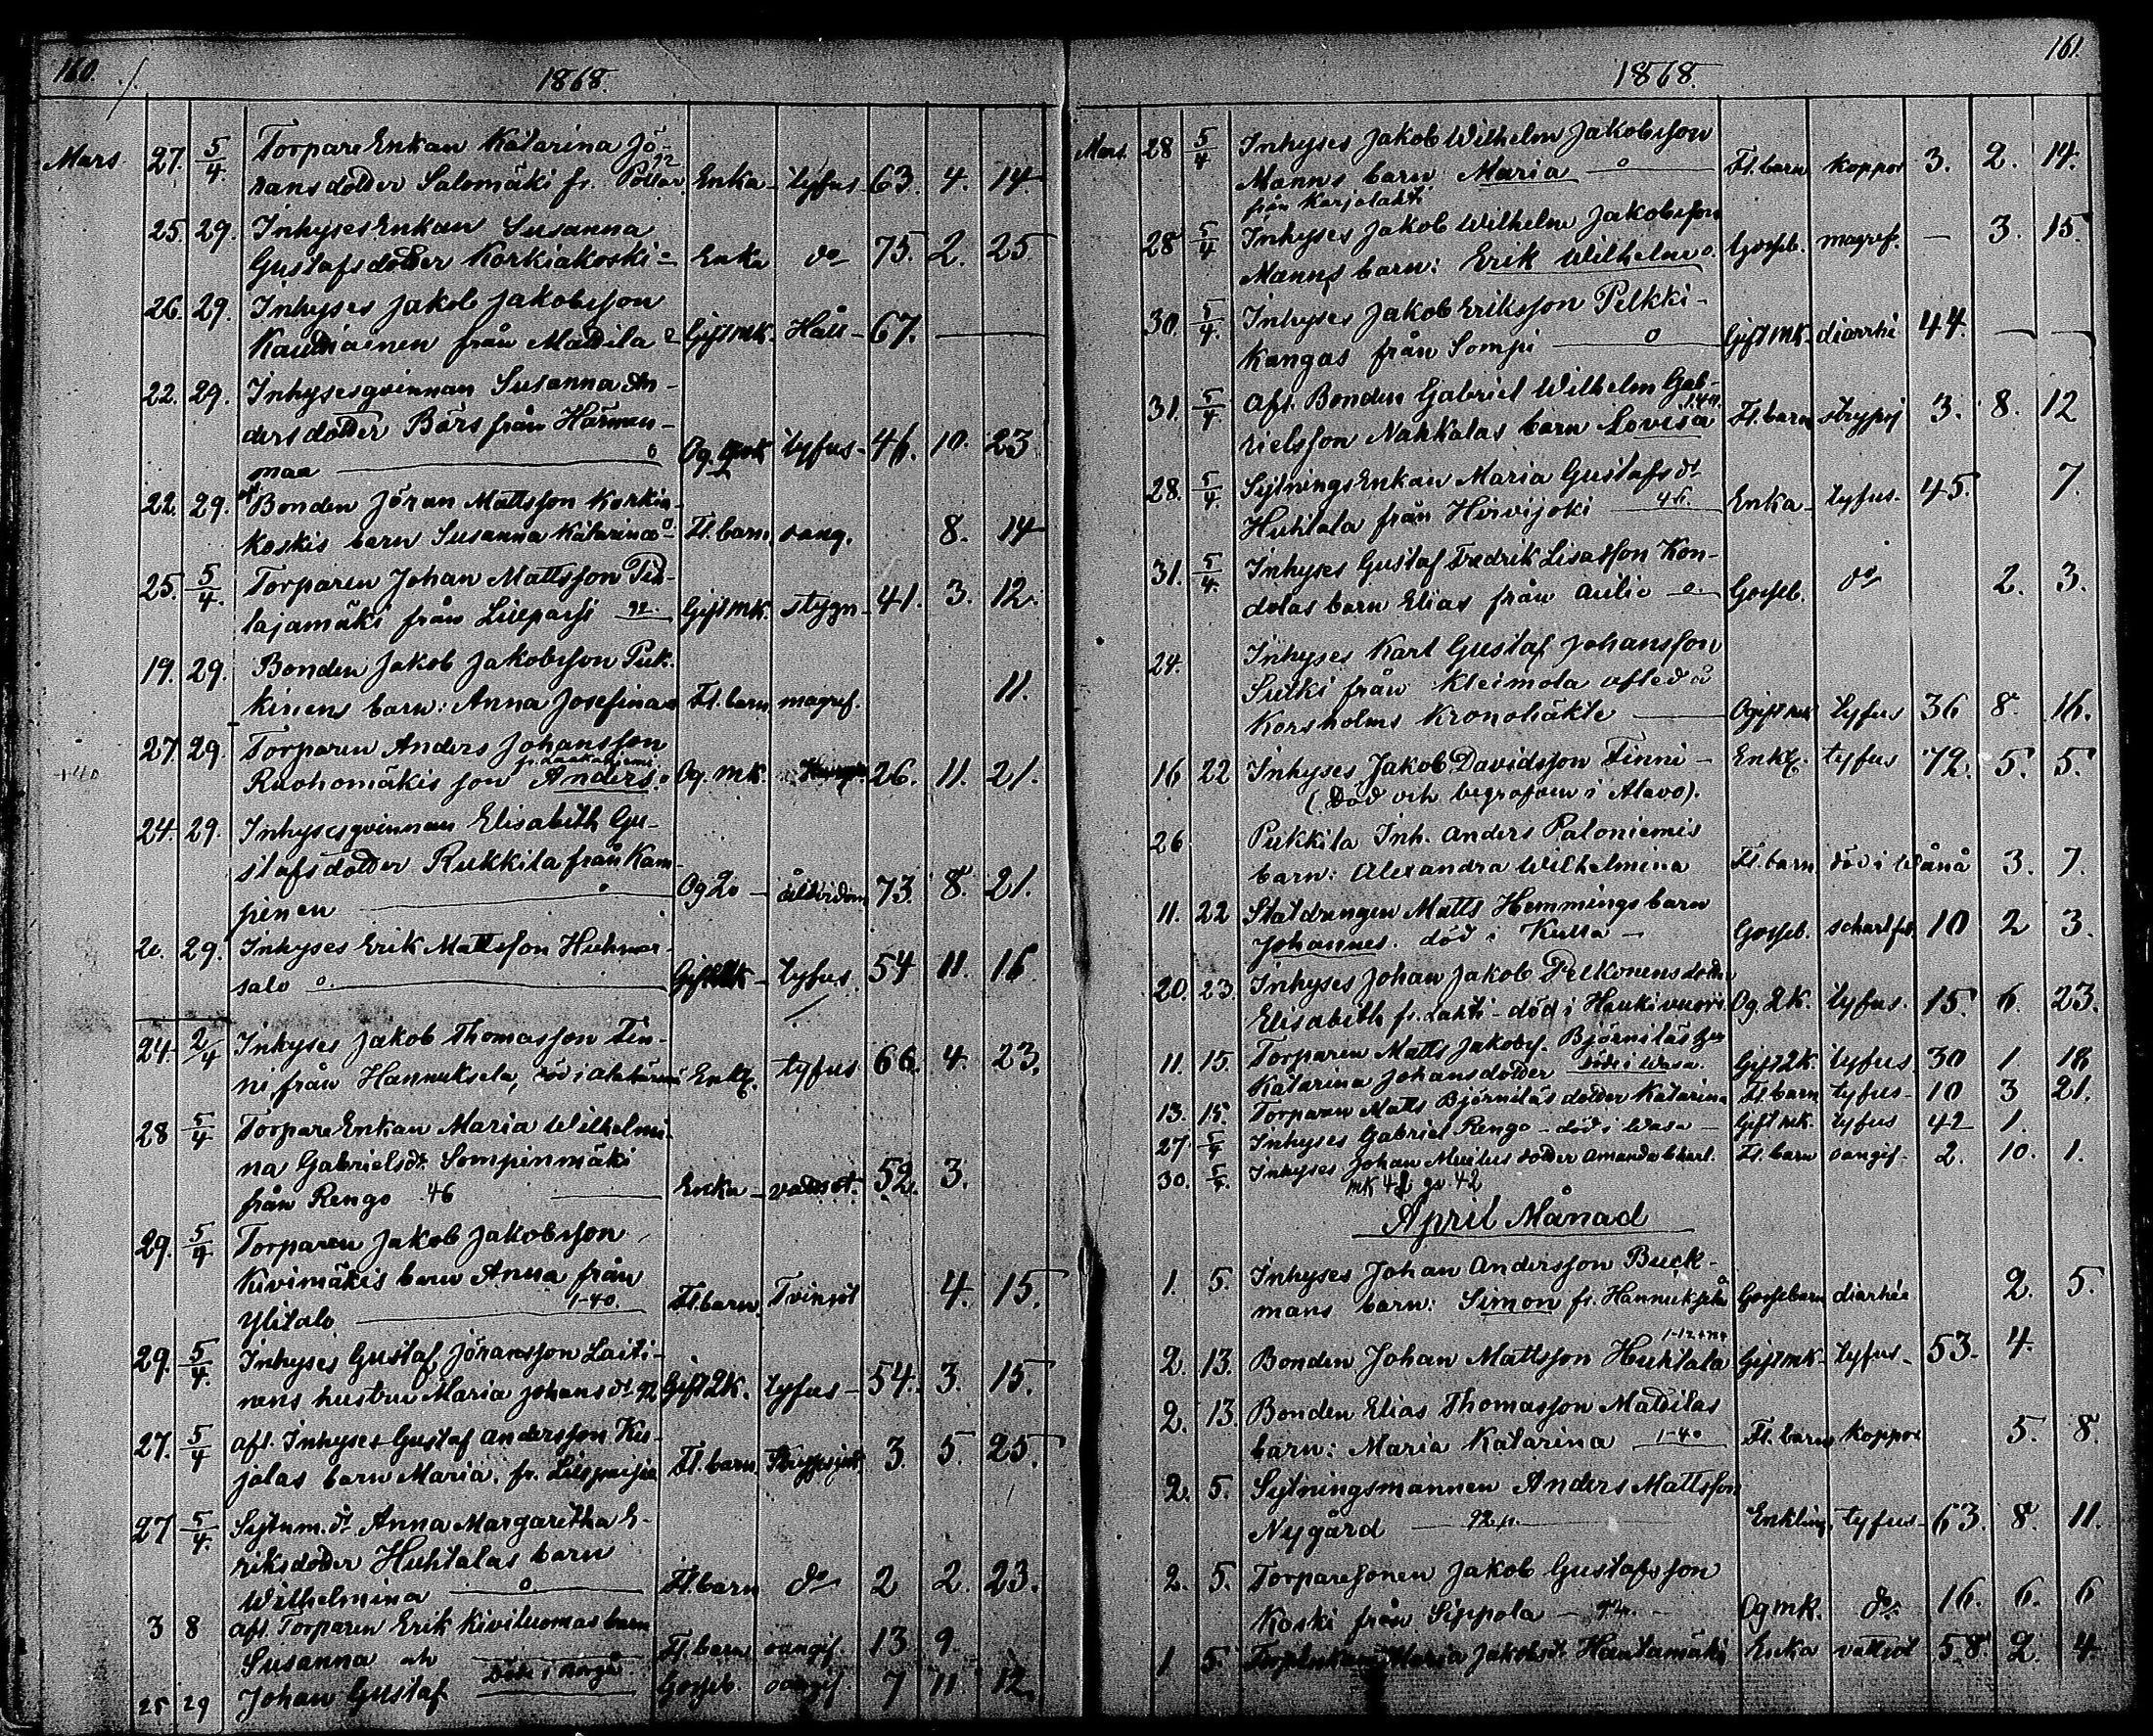 160.
1868.
Mars 27. 5/4. Torpare Enkan Katarina Jö-
ransdotter Salomäki fr. Enka tyfus 63. 4. 14
25. 29. Inhyses Enkan Susanna
Gustafsdotter Korkiakoski Enka do 75. 2. 25
26. 29. Inhyses Jakob Jakobsson
från Mattila Gift mk. Håll 67.
22. 29. Inhysesqvinnan Susanna An-
dersdotter Börs från Härmän-
maa Og. qvk tyfus 46. 10. 23
22. 29. Bonden Jöran Mattsson Korkia-
koskis barn Susanna Katarina Fl. barn oang. 8. 14
25. 5/4. Torparen Johan Mattsson
lajamäki från Gift mk. stygn 41. 3. 12.
19. 29. Bonden Jakob Jakobsson Puk-
kinens barn: Anna Josefina Fl. barn magref. 11.
27. 29. Torparen Anders Johansson
Ruohomäkis son Anders. Og. mk. 26. 11. 21.
24. 29. Inhysesqvinnan Elisabeth Gu-
stafsdotter Rukkila från Kam-
pinen Og 2o ålderdom 73. 8. 21.
20. 29. Inhyses Erik Mattsson Huhmar-
salo tyfus 54 11. 16.
24 2/4 Inhyses Jakob Thomasson Fin-
ni, från Hannuksela, död i Enkl. tyfus 66. 4. 23.
28 5/4 Torpare Enkan Maria Wilhelmi-
na Gabrielsdr. Sompinmäki
från Rengo 46 Enka vattsot. 52. 3.
29. 5/4 Torparen Jakob Jakobsson
Kivimäkis barn Anna från
Ylitalo 1-40. Fl. barn Tvinsot 4. 15.
29. 5/4. Inhyses Gustaf Jöransson Laiti-
nens hustru Maria Johansdr 92 Gift 2k. tyfus 54. 3. 15.
27. 5/4 afl. Inhyses Gustaf Andersson Ku-
jalas barn Maria, fr. Fl. barn 3 5. 25.
27 5/4. Sytnm. dr Anna Margaretha E-
riksdotter Huhtalas barn
Wilhelmina Fl. barn do 2 2. 23.
3 8 afl. Torparen Erik Kiviluomas barn
Susanna och Fl. barn oangif. 13 9.
25 29 Johan Gustaf Gosseb. oangif. 7 11 12.
161.
1868.
Mars. 28 5/4 Inhyses Jakob Wilhelm Jakobsson
Manns barn Maria Fl. barn koppor 3. 2. 14.
från Karjalahti
28 5/4 Inhyses Jakob Wilhelm Jakobsson
Manns barn: Erik Wilhelm Gosseb. magref. 3. 15.
30. 5/4. Inhyses Jakob Eriksson Pelkki-
kangas från Sompi Gift mk. diarrhé 44.
31. 5/4. Afl. Bonden Gabriel Wilhelm Gab-
rielsson Nahkalas barn Lovisa Fl. barn strypsj 3. 8. 12
28. 5/4. Sytnings Enkan Maria Gustafsdr
Huhtala från Hirvijoki 46. Enka tyfus. 45. 7.
31. 5/4. Inhyses Gustaf Fredrik Lisasson Kon-
dolas barn Elias från Gosseb. do 2. 3.
24. Inhyses Karl Gustaf Johansson
Sulki från Kleimola afled å
Korsholms Kronohäkte Ogift mk tyfus 36 8. 16.
16 22 Inhyses Jakob Davidsson Finni Enkl. tyfus 72. 5. 5.
(död och begrafven i Alavo).
26. Pukkila Inh. Anders Paloniemis
barn: Alexandra Wilhelmina Fl. barn död i 3. 7.
11. 22 Statdrängen Matts Hemmings barn
Johannes. död i Gosseb. scharl.feb. 10 2 3.
20. 23. Inhyses Johan Jakob Pelkonens dotter
Elisabeth fr. Lahti - död i Haukivuori. Og. 2k. tyfus. 15. 6. 23.
11. 15. Torparen Matts Jakobs. Björniläs hu
Katarina Johansdotter död i Wasa. Gift 2k. tyfus 30 1. 18
13. 15. Torparen Matts Björniläs dotter Katarina Fl. barn tyfus 10 3 21.
27. 5/4 Inhyses Gabriel Rengo - död i Wasa Gift mk. tyfus 42 1.
30. 5/4. Inhyses Johan dotter Amanda Fl. barn oangif. 2. 10. 1.
mk 42 qv. 42
April Månad
1. 5. Inhyses Johan Andersson Buck-
mans barn: Simon fr. Hannuksela Gossebarn diarhée 2. 5.
2. 13. Bonden Johan Mattsson Huhtala Gift mk tyfus 53. 4.
2. 13. Bonden Elias Thomasson Mattilas
barn: Maria Katarina 1-40 Fl. barn koppor 5. 8.
2. 5. Sytningsmannen Anders Mattsson
Nygård Enkling tyfus 63. 8. 11.
2. 5. Torparesonen Jakob Gustafsson
Koski från Sippola Og mk. do 16. 6. 6
1 5. Maria Jakobsdr Hautamäki Enka vattsot 58. 2. 4.